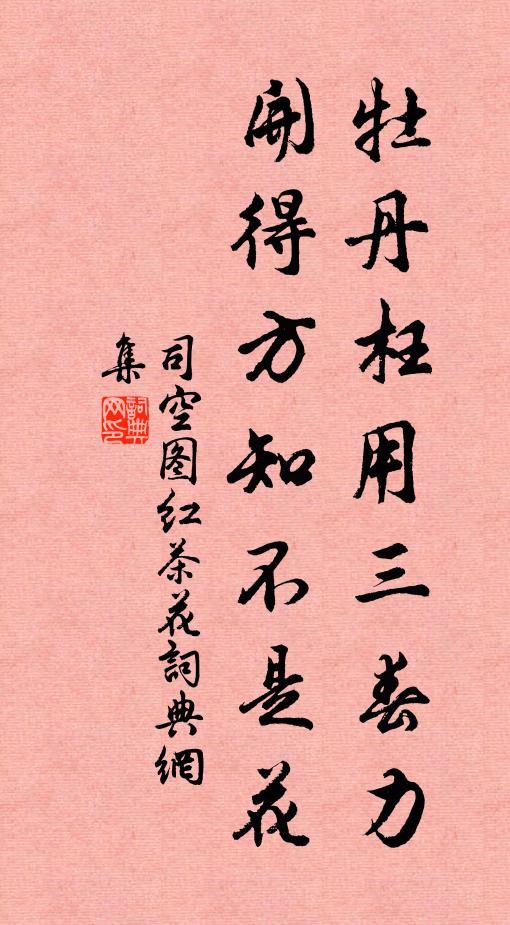 牡丹枉用三春力
開得方知不是花
司空图红茶花詞典網
集
詞典网印